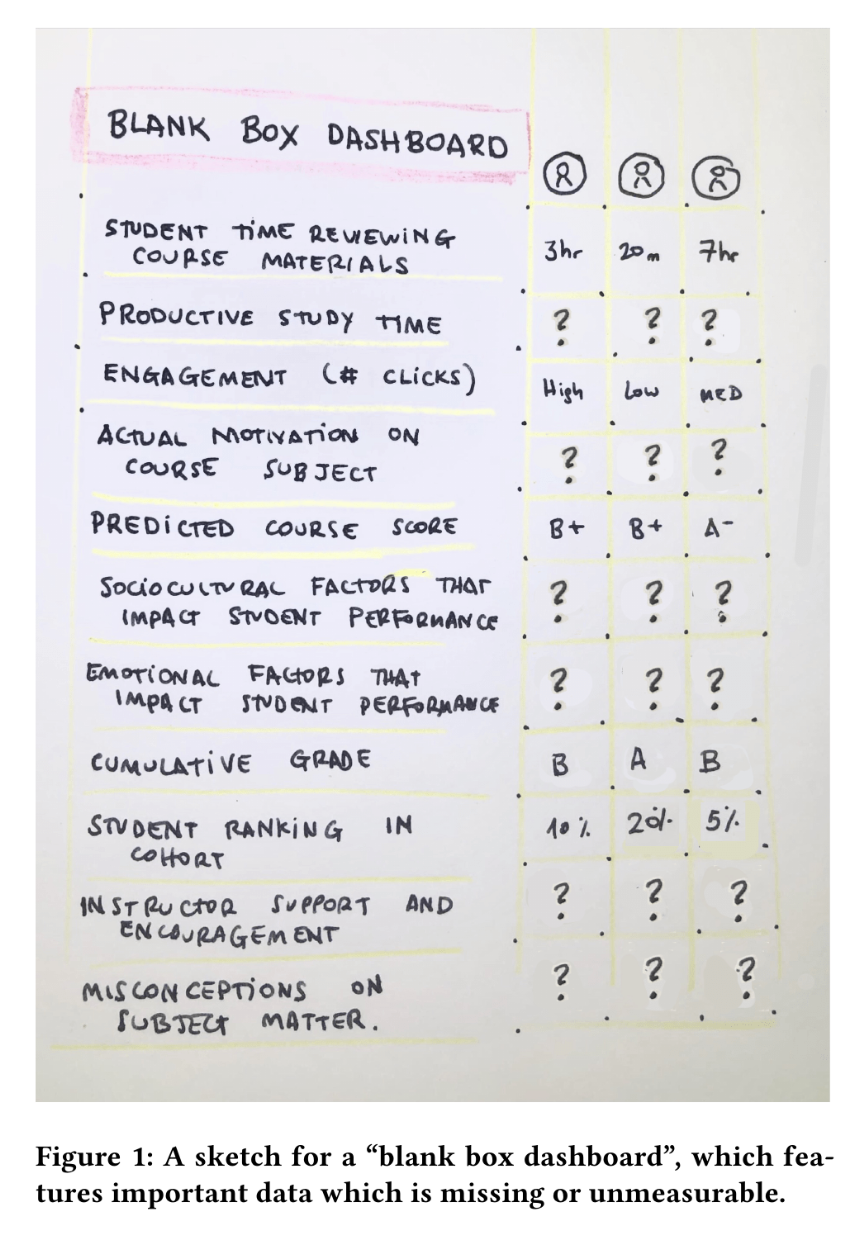 BLANK BOX DASHBOARD
STUDENT TIME REVIEWING
COURSE MATERIALS
3hr 20m 7hr
PRODUCTIVE STUDY TIME ? ? ?
ENGAGEMENT (# CLICKS) High Low MED
ACTUAL MOTIVATION ON
COURSE SUBJECT
? ? ?
PREDICTED COURSE SCORE B+ B+ A-
SOCIOCULTURAL FACTORS THAT
IMPACT STUDENT PERFORMANCE
? ? ?
EMOTIONAL FACTORS THAT
IMPACT STUDENT PERFORMANCE
? ? ?
CUMULATIVE GRADE B A B
STUDENT RANKING IN
COHORT
10% 20% 5%
INSTRUCTOR SUPPORT AND
ENCOURAGEMENT
? ? ?
MISCONCEPTIONS ON
SUBJECT MATTER.
? ? ?
Figure 1: A sketch for a “blank box dashboard”, which fea-
tures important data which is missing or unmeasurable.